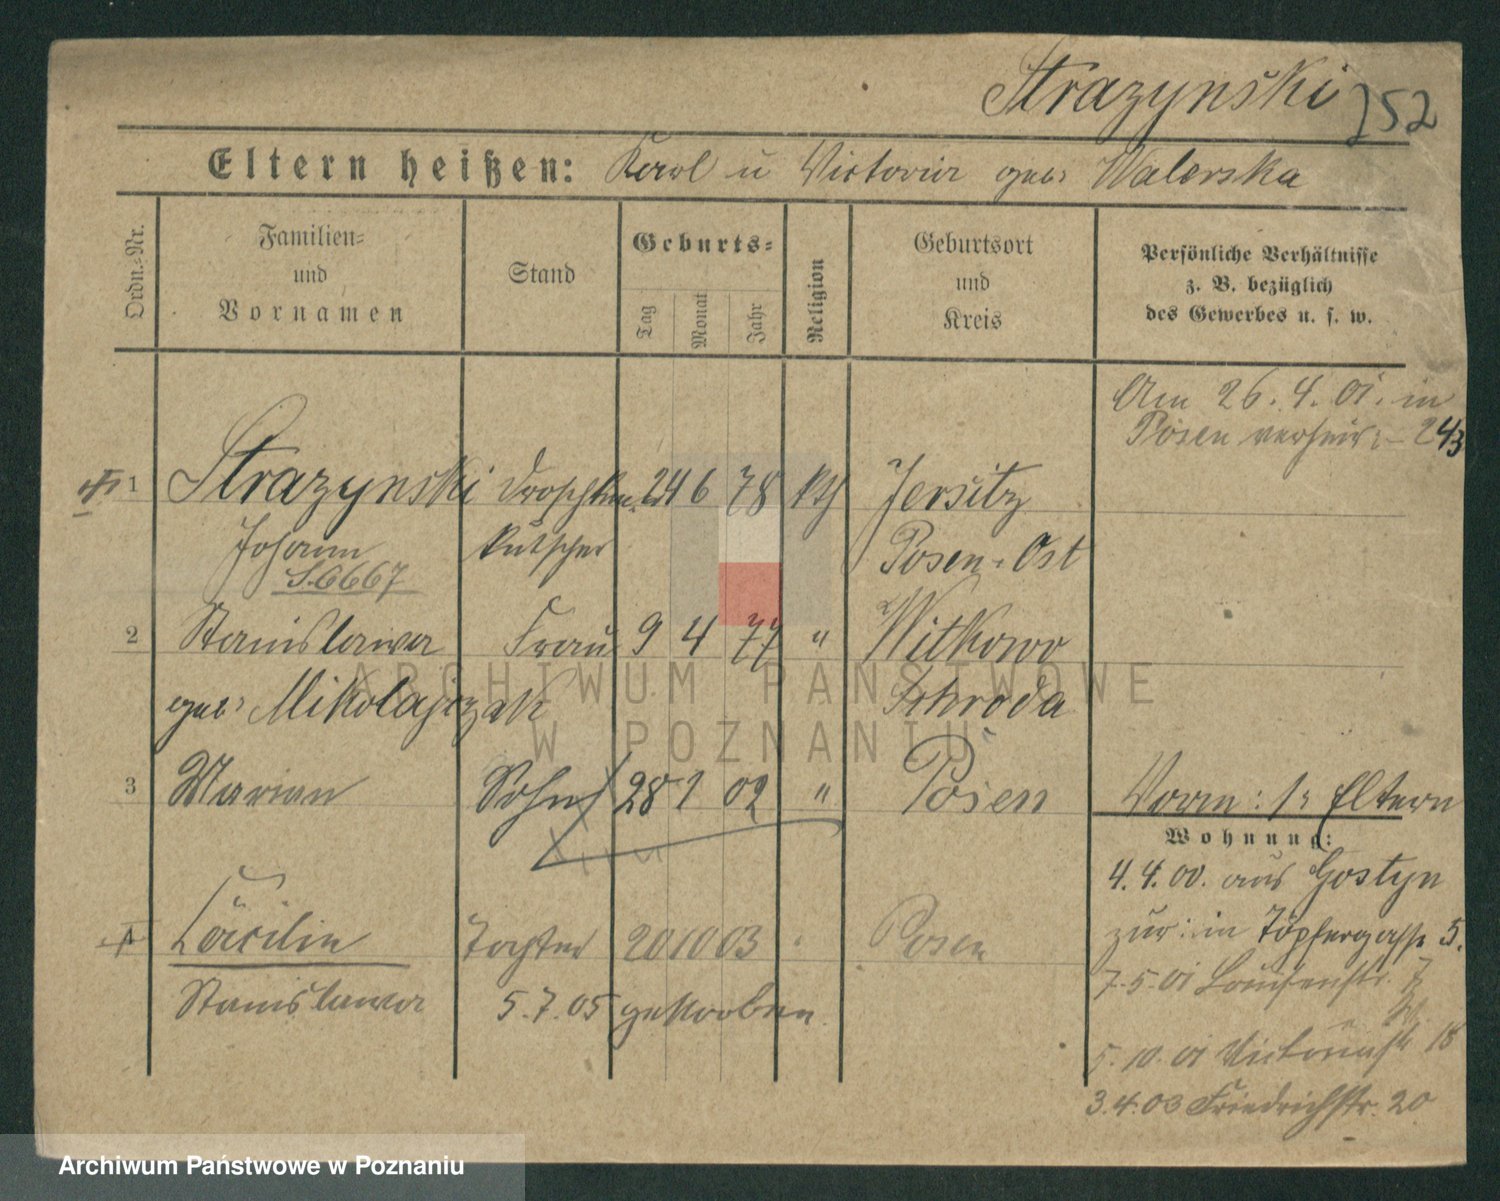 Strazynski 252
Eltern heißen: Karl u Victoria geb: Walerska
Ordn.-Nr.
Familien- und Vornamen
Stand
Geburts-
Tag
Monat
Jahr
Religion
Geburtsort und Kreis
Persönliche Verhältnisse
z. B. bezüglich
des Gewerbes u. s. w.
Am 26. 4. 01. in
Posen verheir: - 243
1 Strazynski Droschken- 24 6 78 kth Jersitz
Johann kutscher Posen-Ost
S.6667
2 Stanislawa Frau 9 4 77 " Witkowo
geb: Mikolajczak Schroda
ARCHIWUM PAŃSTWOWE
W POZNANIU
3 Marian Sohn 28 1 02 " Posen
Vorm: 1: Eltern
Wohnung:
4. 4. 00. aus Gostyn
zur: in Töpfergasse 5.
4 Cäcilie Tochter 20 10 03 Posen
Stanislawa 5. 7. 05 gestorben.
7. 5. 01 Louisenstr. 7
5. 10. 01 Victoriastr 18
3. 4. 03 Friedrichstr. 20
Archiwum Państwowe w Poznaniu